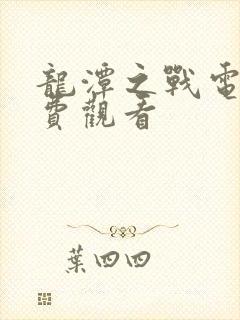 龍潭之戰電
費觀看
葉四四